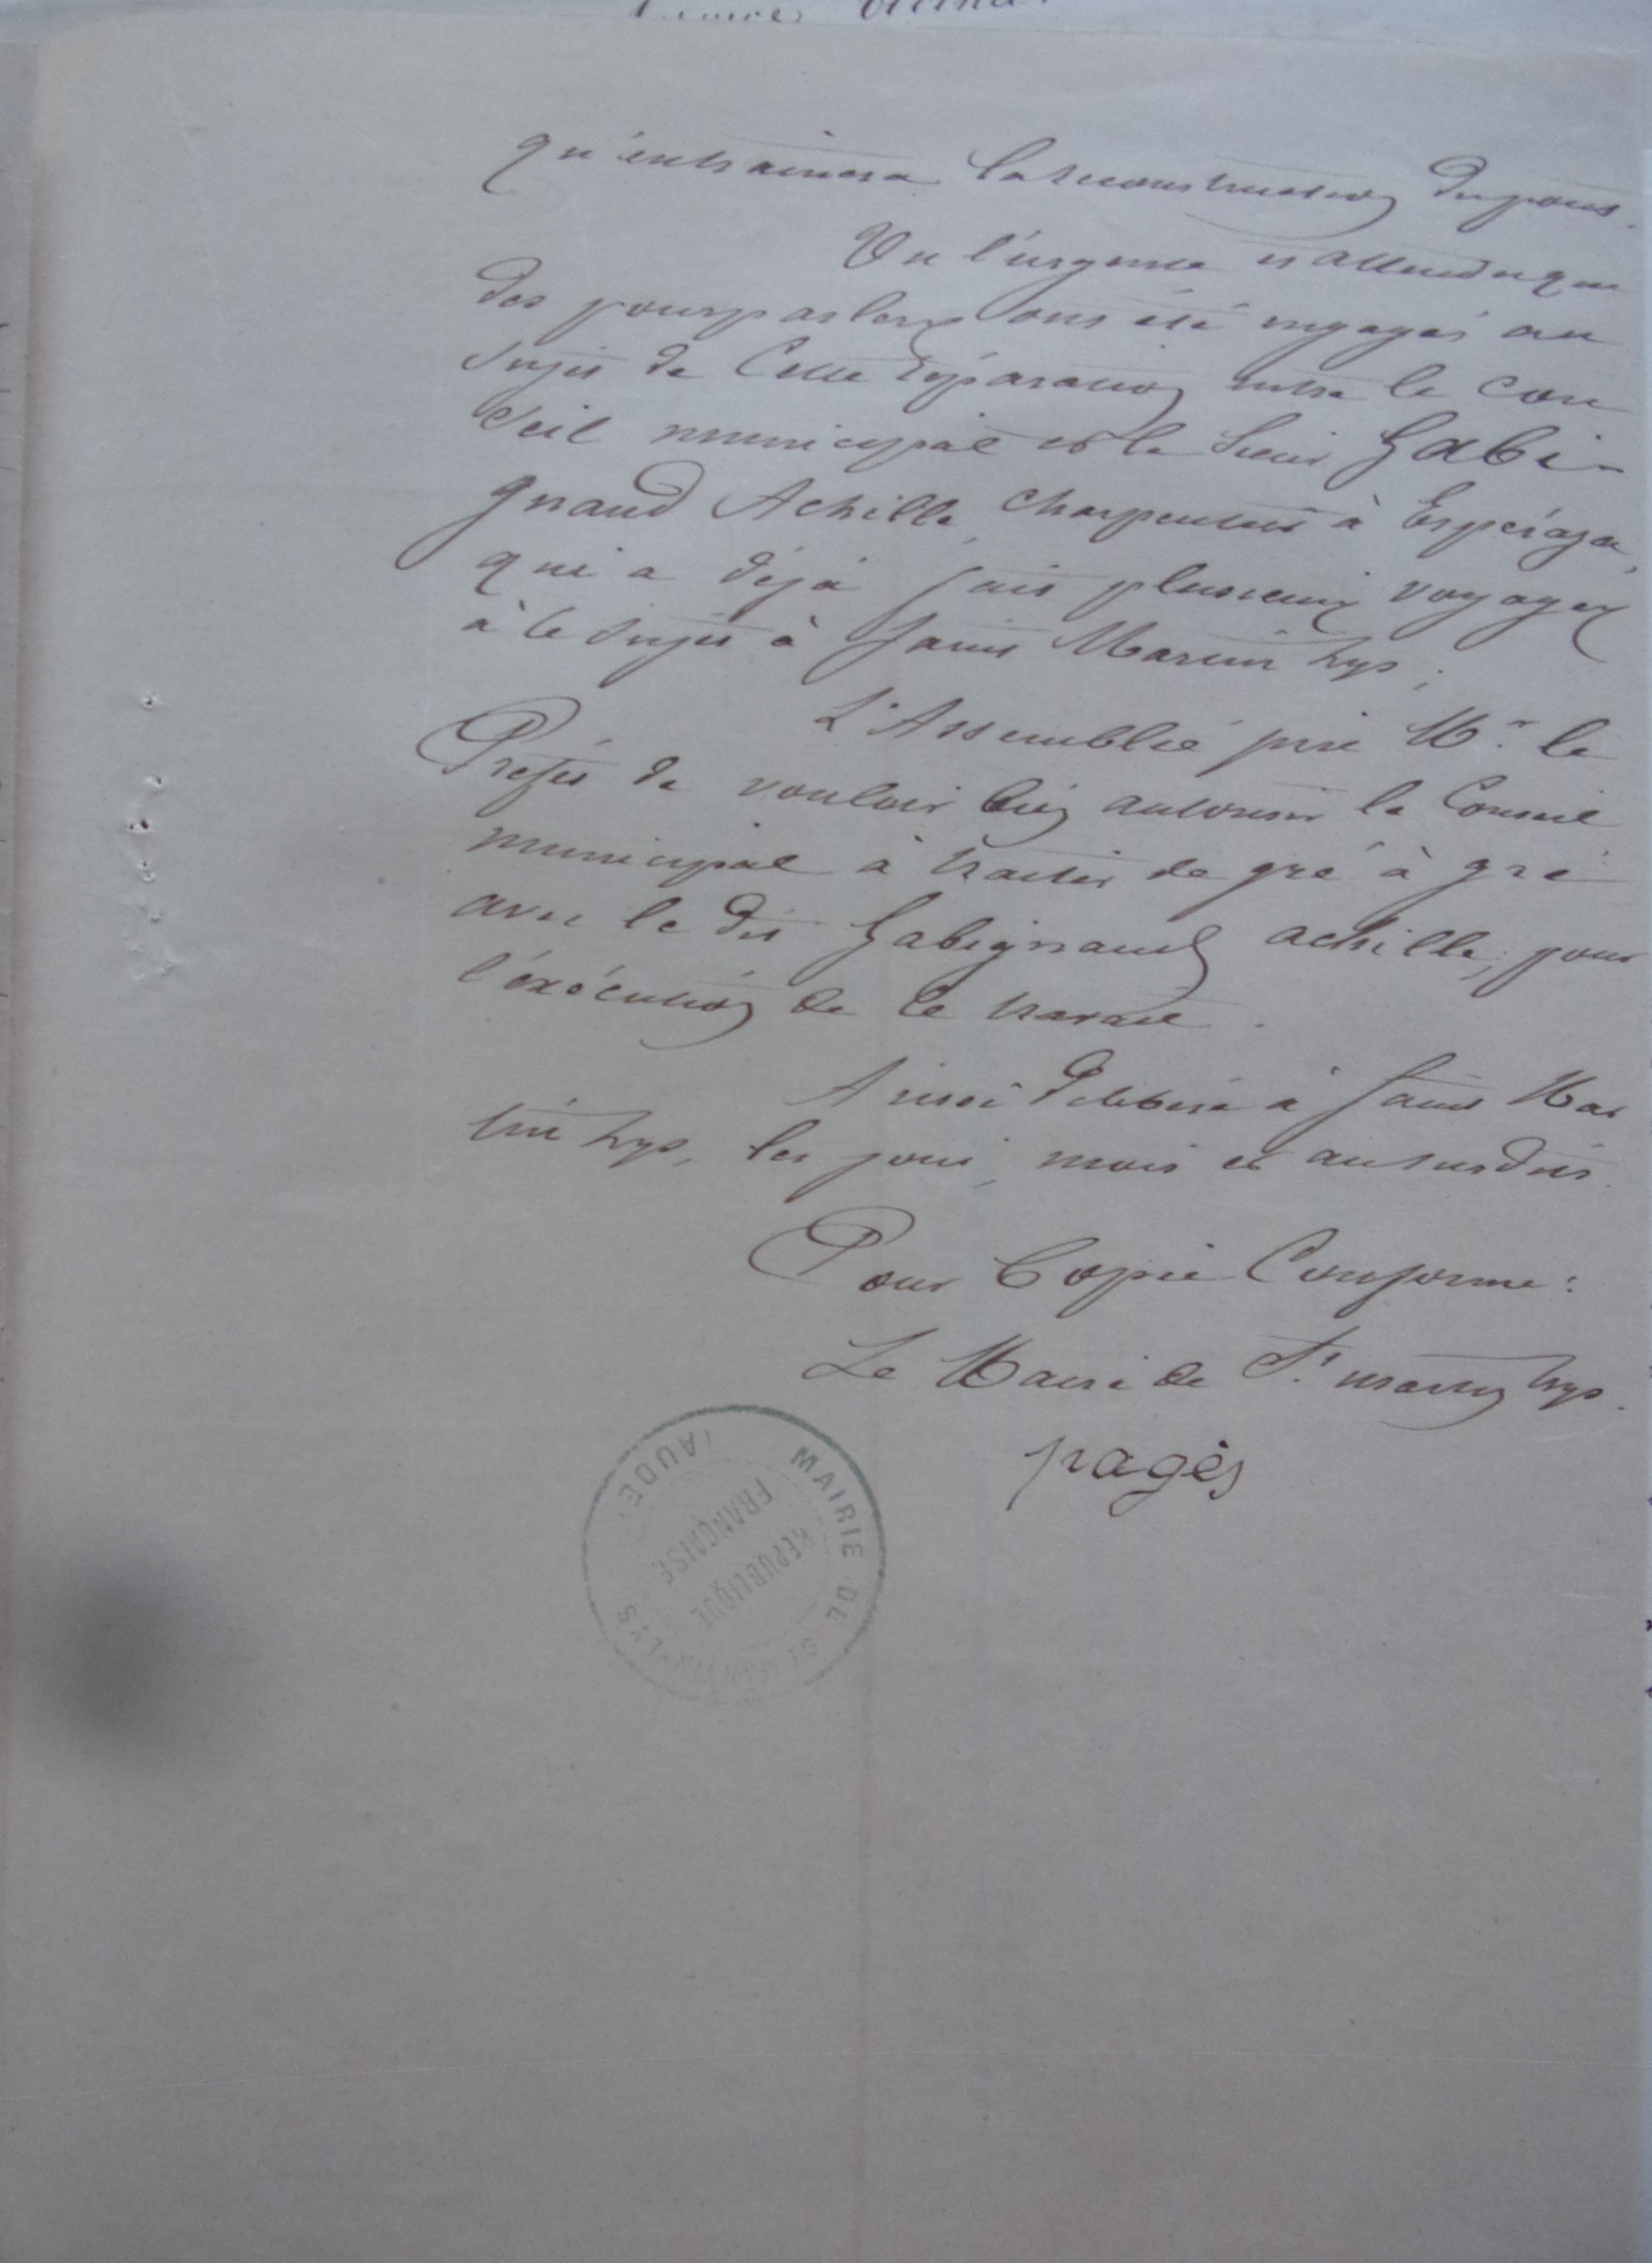 qu'entrainera la reconstruction du pont.
Vu l'urgence et attendu que
des pourparlers ont été engagés au
sujet de cette réparation entre le con
seil municipal et le sieur Gabi-
gnaud Achille, charpentier à Espéraza,
qui a déjà fait plusieurs voyages
à ce sujet à Saint Martin Lys ;
L'Assemblée prie Mr. le
Préfet de vouloir bien autoriser le Conseil
municipal à traiter de gré à gré
avec le dit Gabignaud achille, pour
l'éxécution de ce travail.
Ainsi délibéré à Saint Mar
tin Lys, les jour, mois et an susdits.
Pour Copie Conforme :
Le Maire de St. martin Lys.
pagès
MAIRIE DE ST MARTIN-LYS
(AUDE)
RÉPUBLIQUE
FRANÇAISE